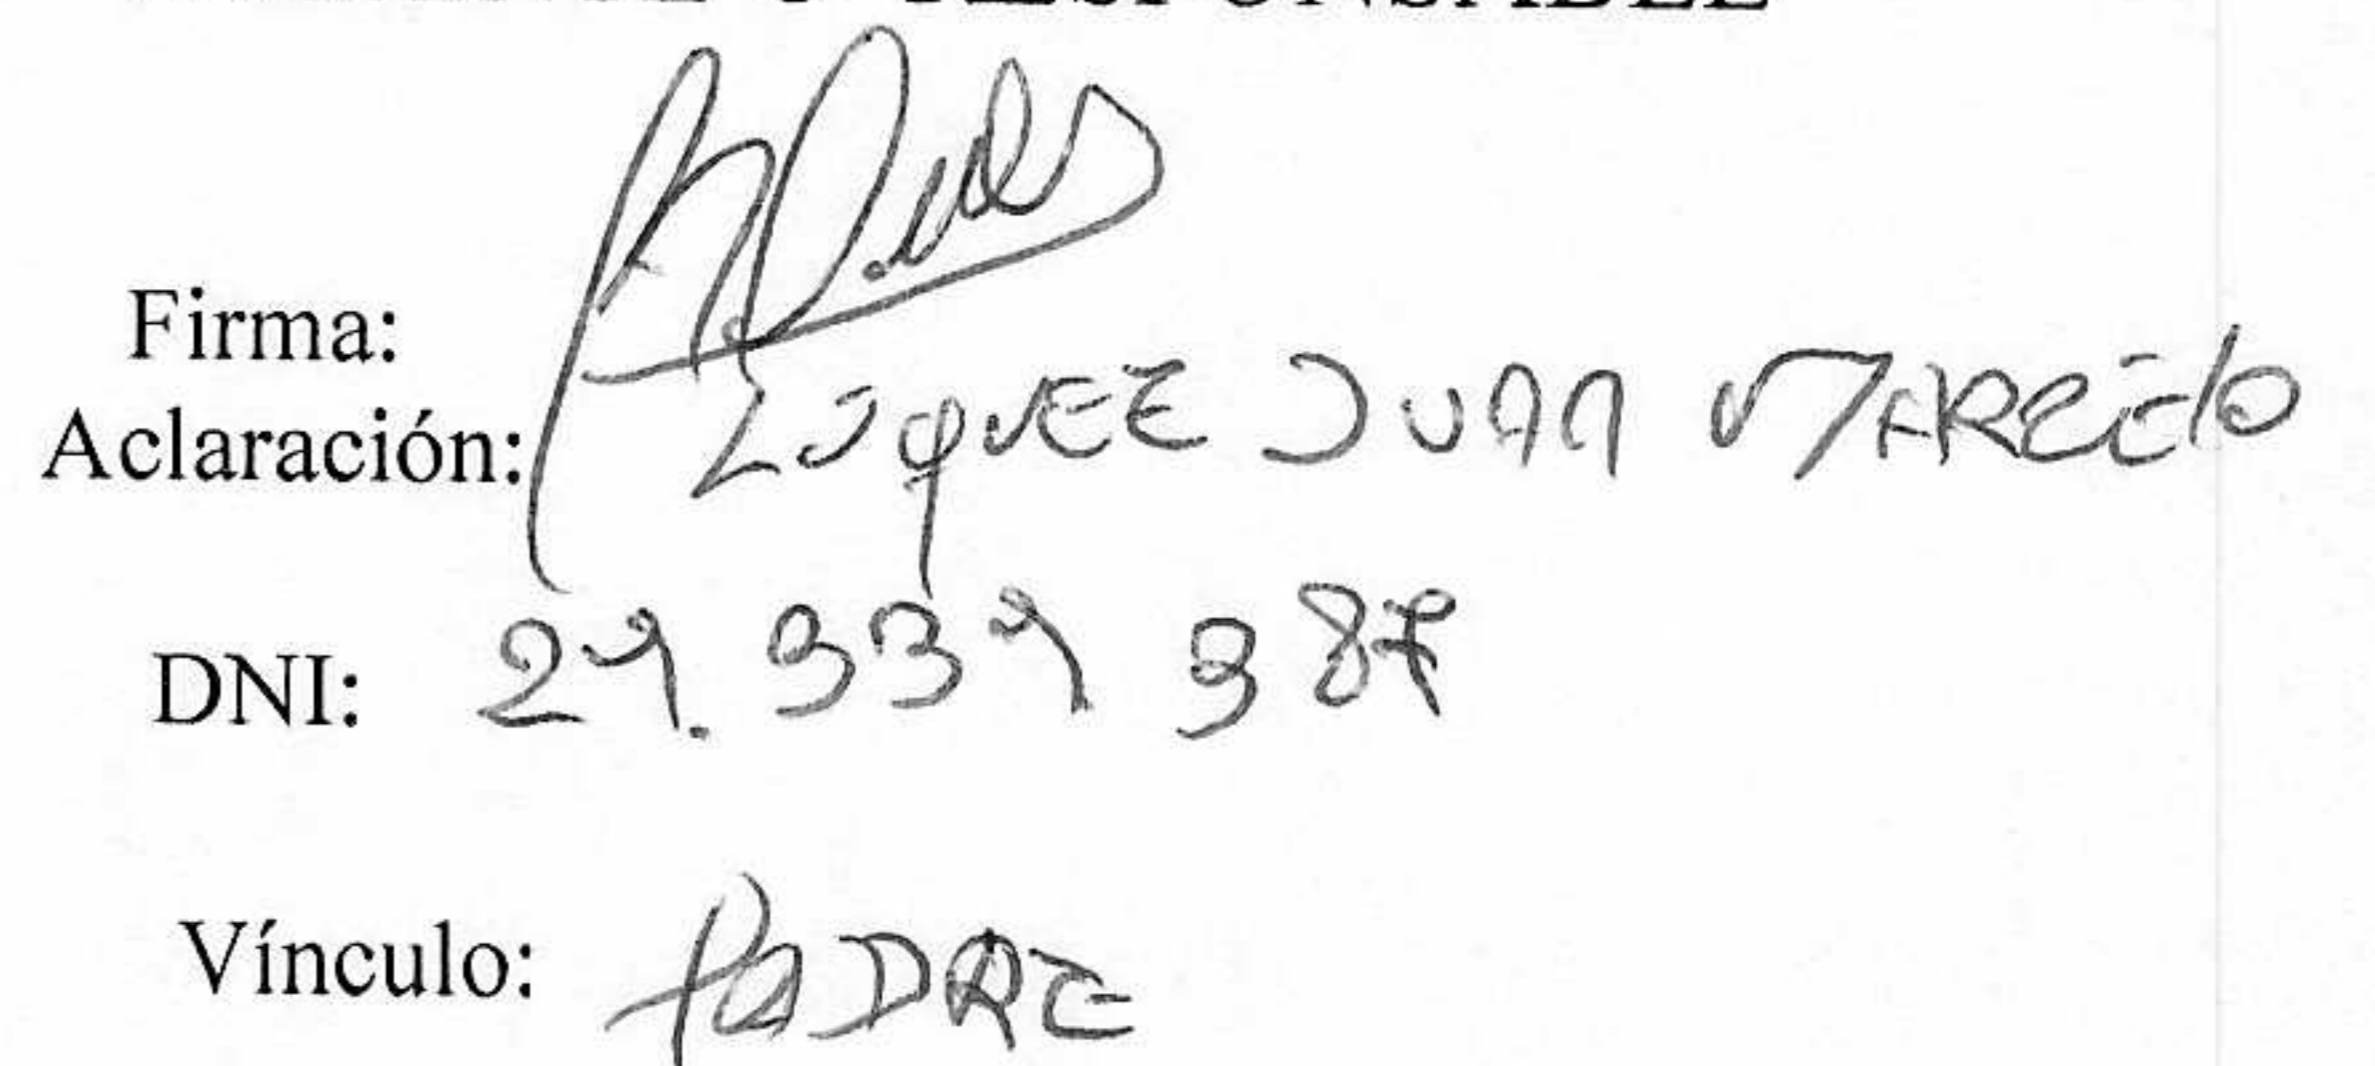 RESPONSABLE
Firma:
Aclaración: LUQUEZ JUAN MARCELO
DNI: 29.339 387
Vínculo: PADRE